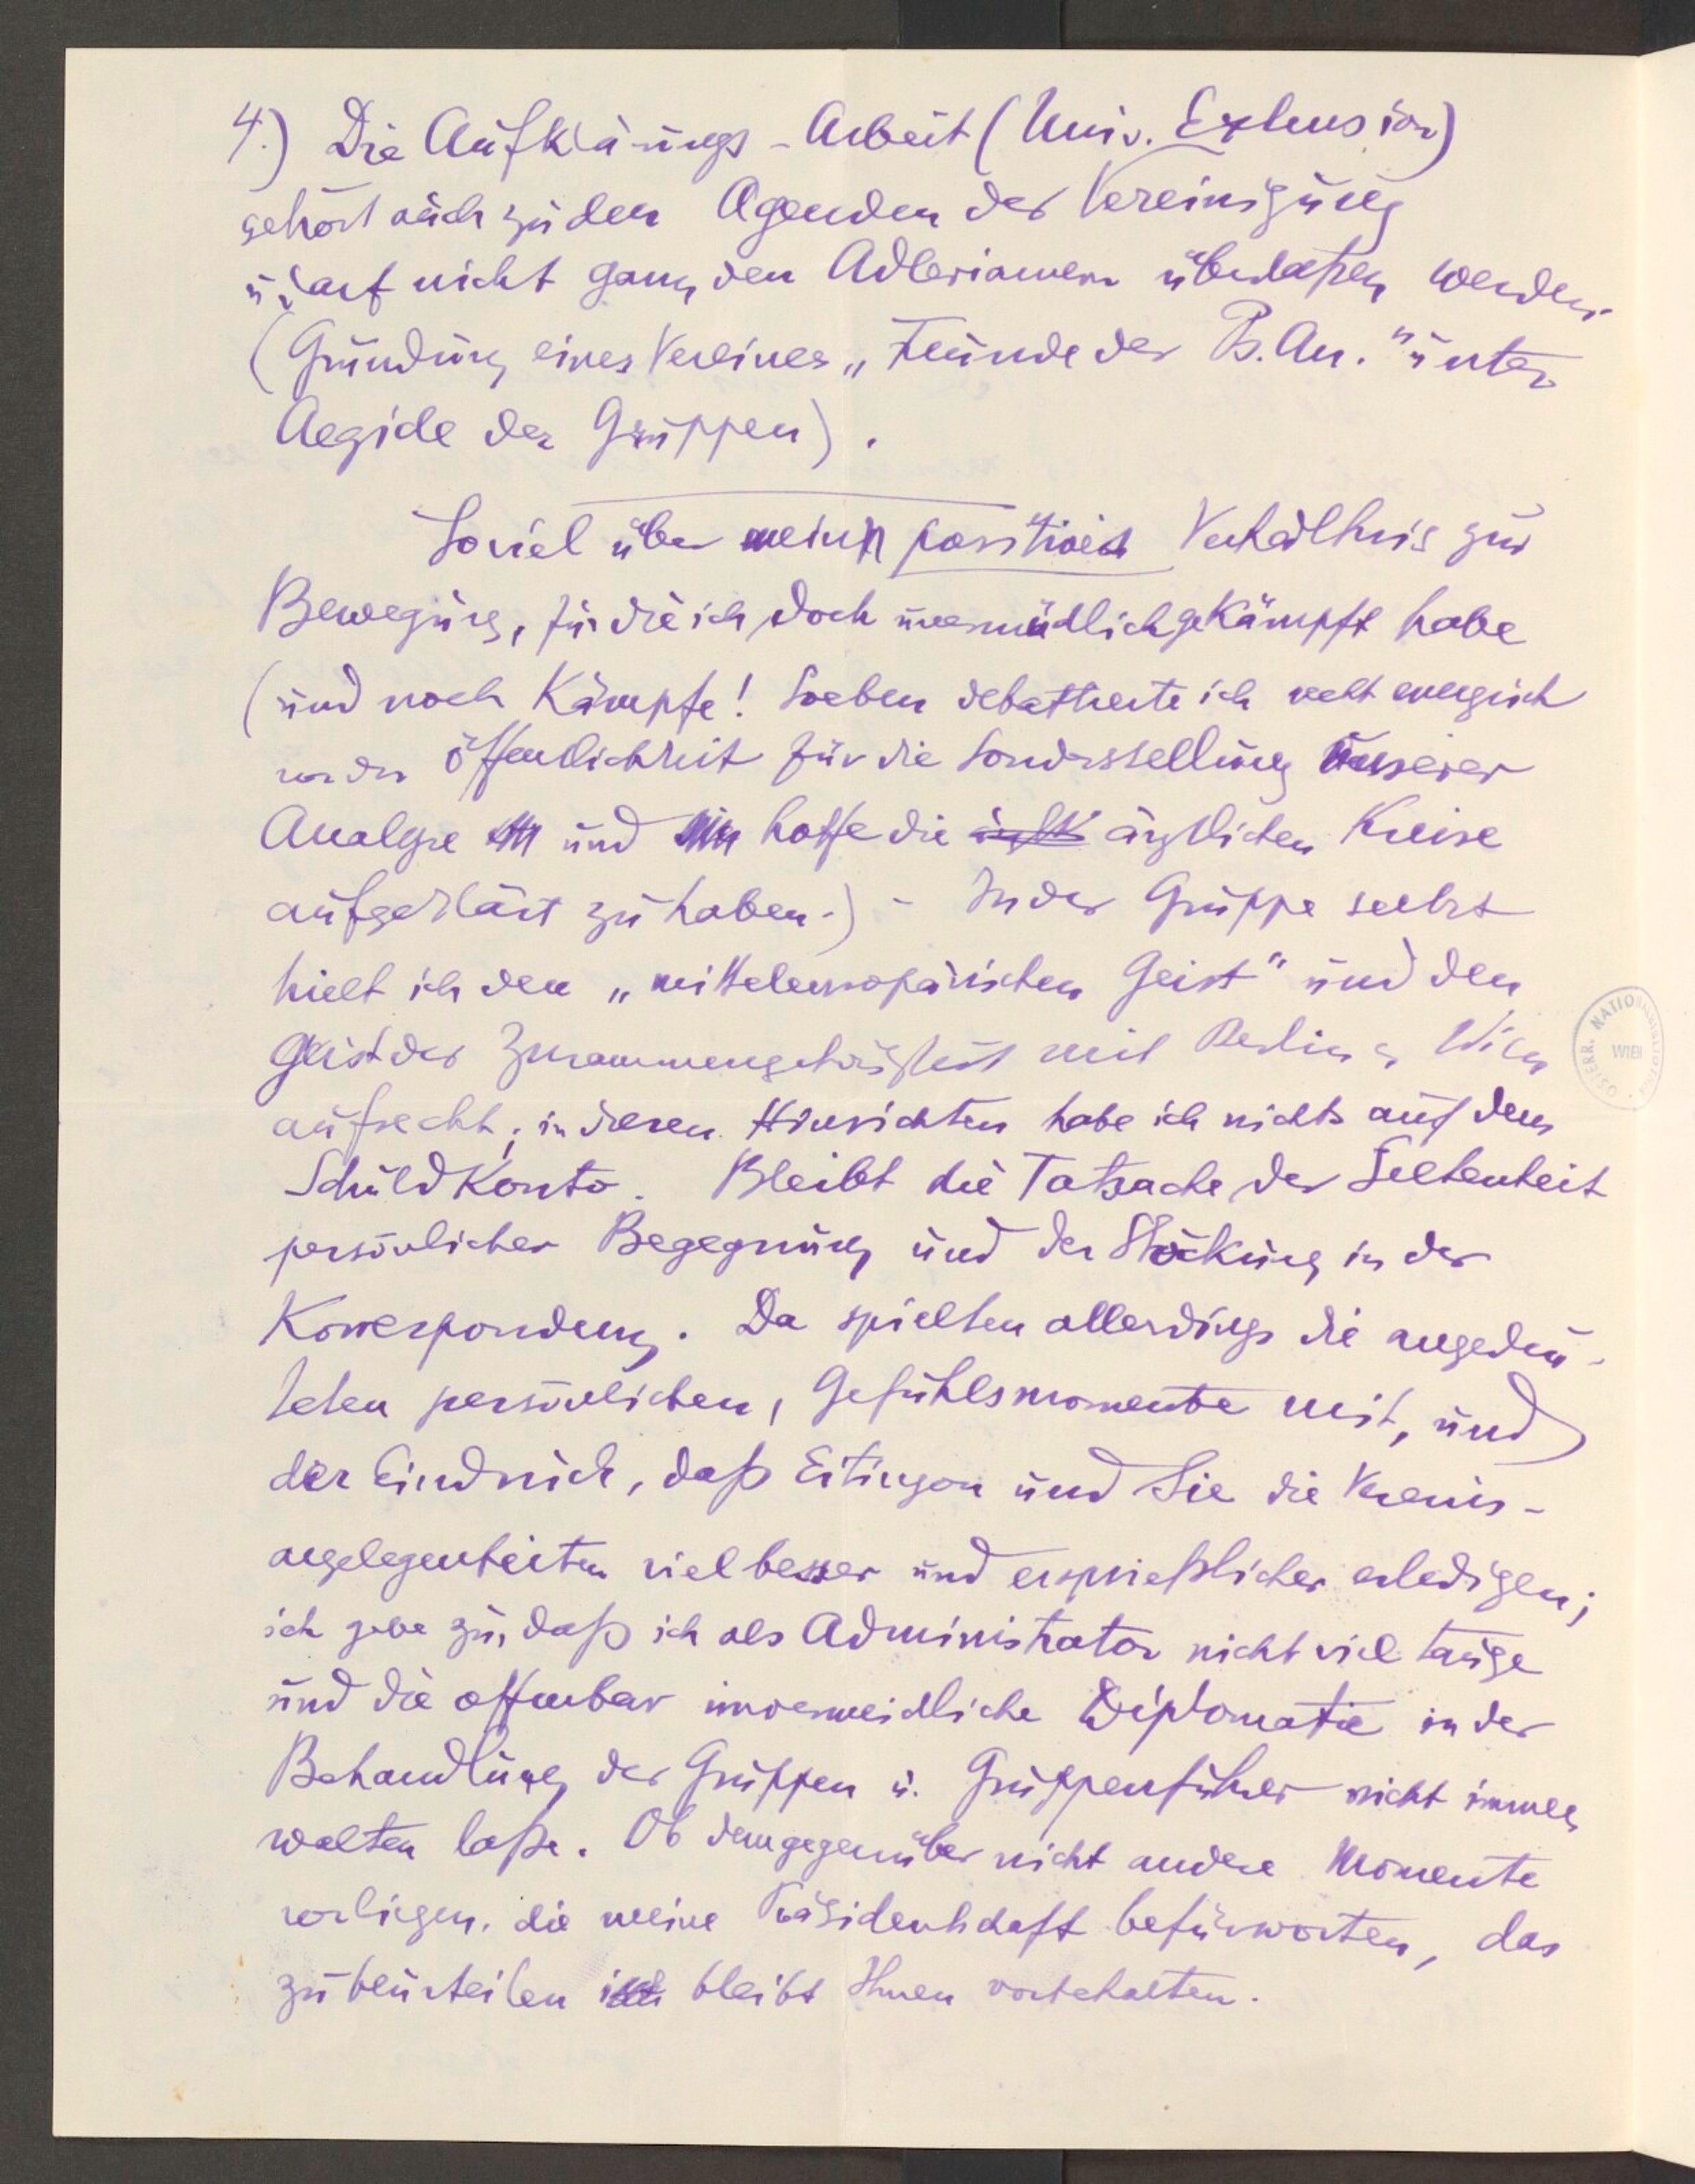 4.) Die Aufklärungs-Arbeit (Univ. Extension)
gehört auch zu den Agenden der Vereinigung
u. darf nicht ganz den Adlerianern überlaßen werden.
(Gründung eines Vereines „Freunde der Ps.An." unter
Aegide der Gruppen).
Soviel über mein positives Verhältnis zur
Bewegung, für die ich doch unermüdlich gekämpft habe
(und noch kämpfe! Soeben debattierte ich recht energisch
vor der Öffentlichkeit für die Sonderstellung unserer
Analyse und hoffe die ärztlichen Kreise
aufgeklärt zu haben.) - In der Gruppe selbst
hielt ich den „mitteleuropäischen Geist" und den
Geist der Zusammengehörigkeit mit Berlin u. Wien
aufrecht; in diesen Hinsichten habe ich nichts auf dem
Schuldkonto. Bleibt die Tatsache der Seltenheit
persönlicher Begegnung und der Stockung in der
Korrespondenz. Da spielten allerdings die angedeu-
teten persönlichen, Gefühlsmomente mit, und
der Eindruck, daß Eitingon und Sie die Vereins-
angelegenheiten viel besser und ersprießlicher erledigen;
ich gebe zu, daß ich als Administrator nicht viel tauge
und die offenbar unvermeidliche Diplomatie in der
Behandlung der Gruppen u. Gruppenführer nicht immer
walten laße. Ob demgegenüber nicht andere Momente
vorliegen, die meine Präsidentschaft befürworten, das
zu beurteilen bleibt Ihnen vorbehalten.
ÖSTERR. NATIONALBIBLIOTHEK
WIEN